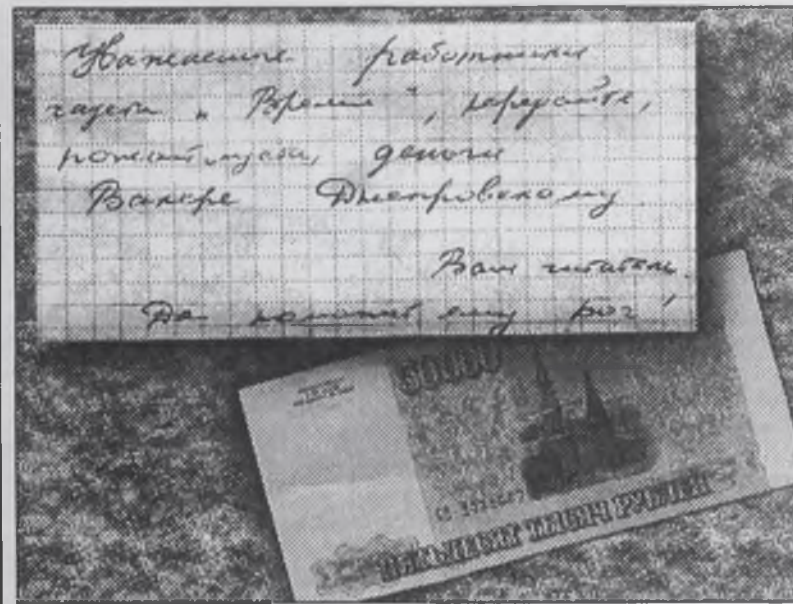 Уважаемые работники
газеты „Время", передайте,
пожалуйста, деньги
Вакере Днепровскому
Ваш читатель.
Да поможет ему бог!
50000
ПЯТЬДЕСЯТ ТЫСЯЧ РУБЛЕЙ